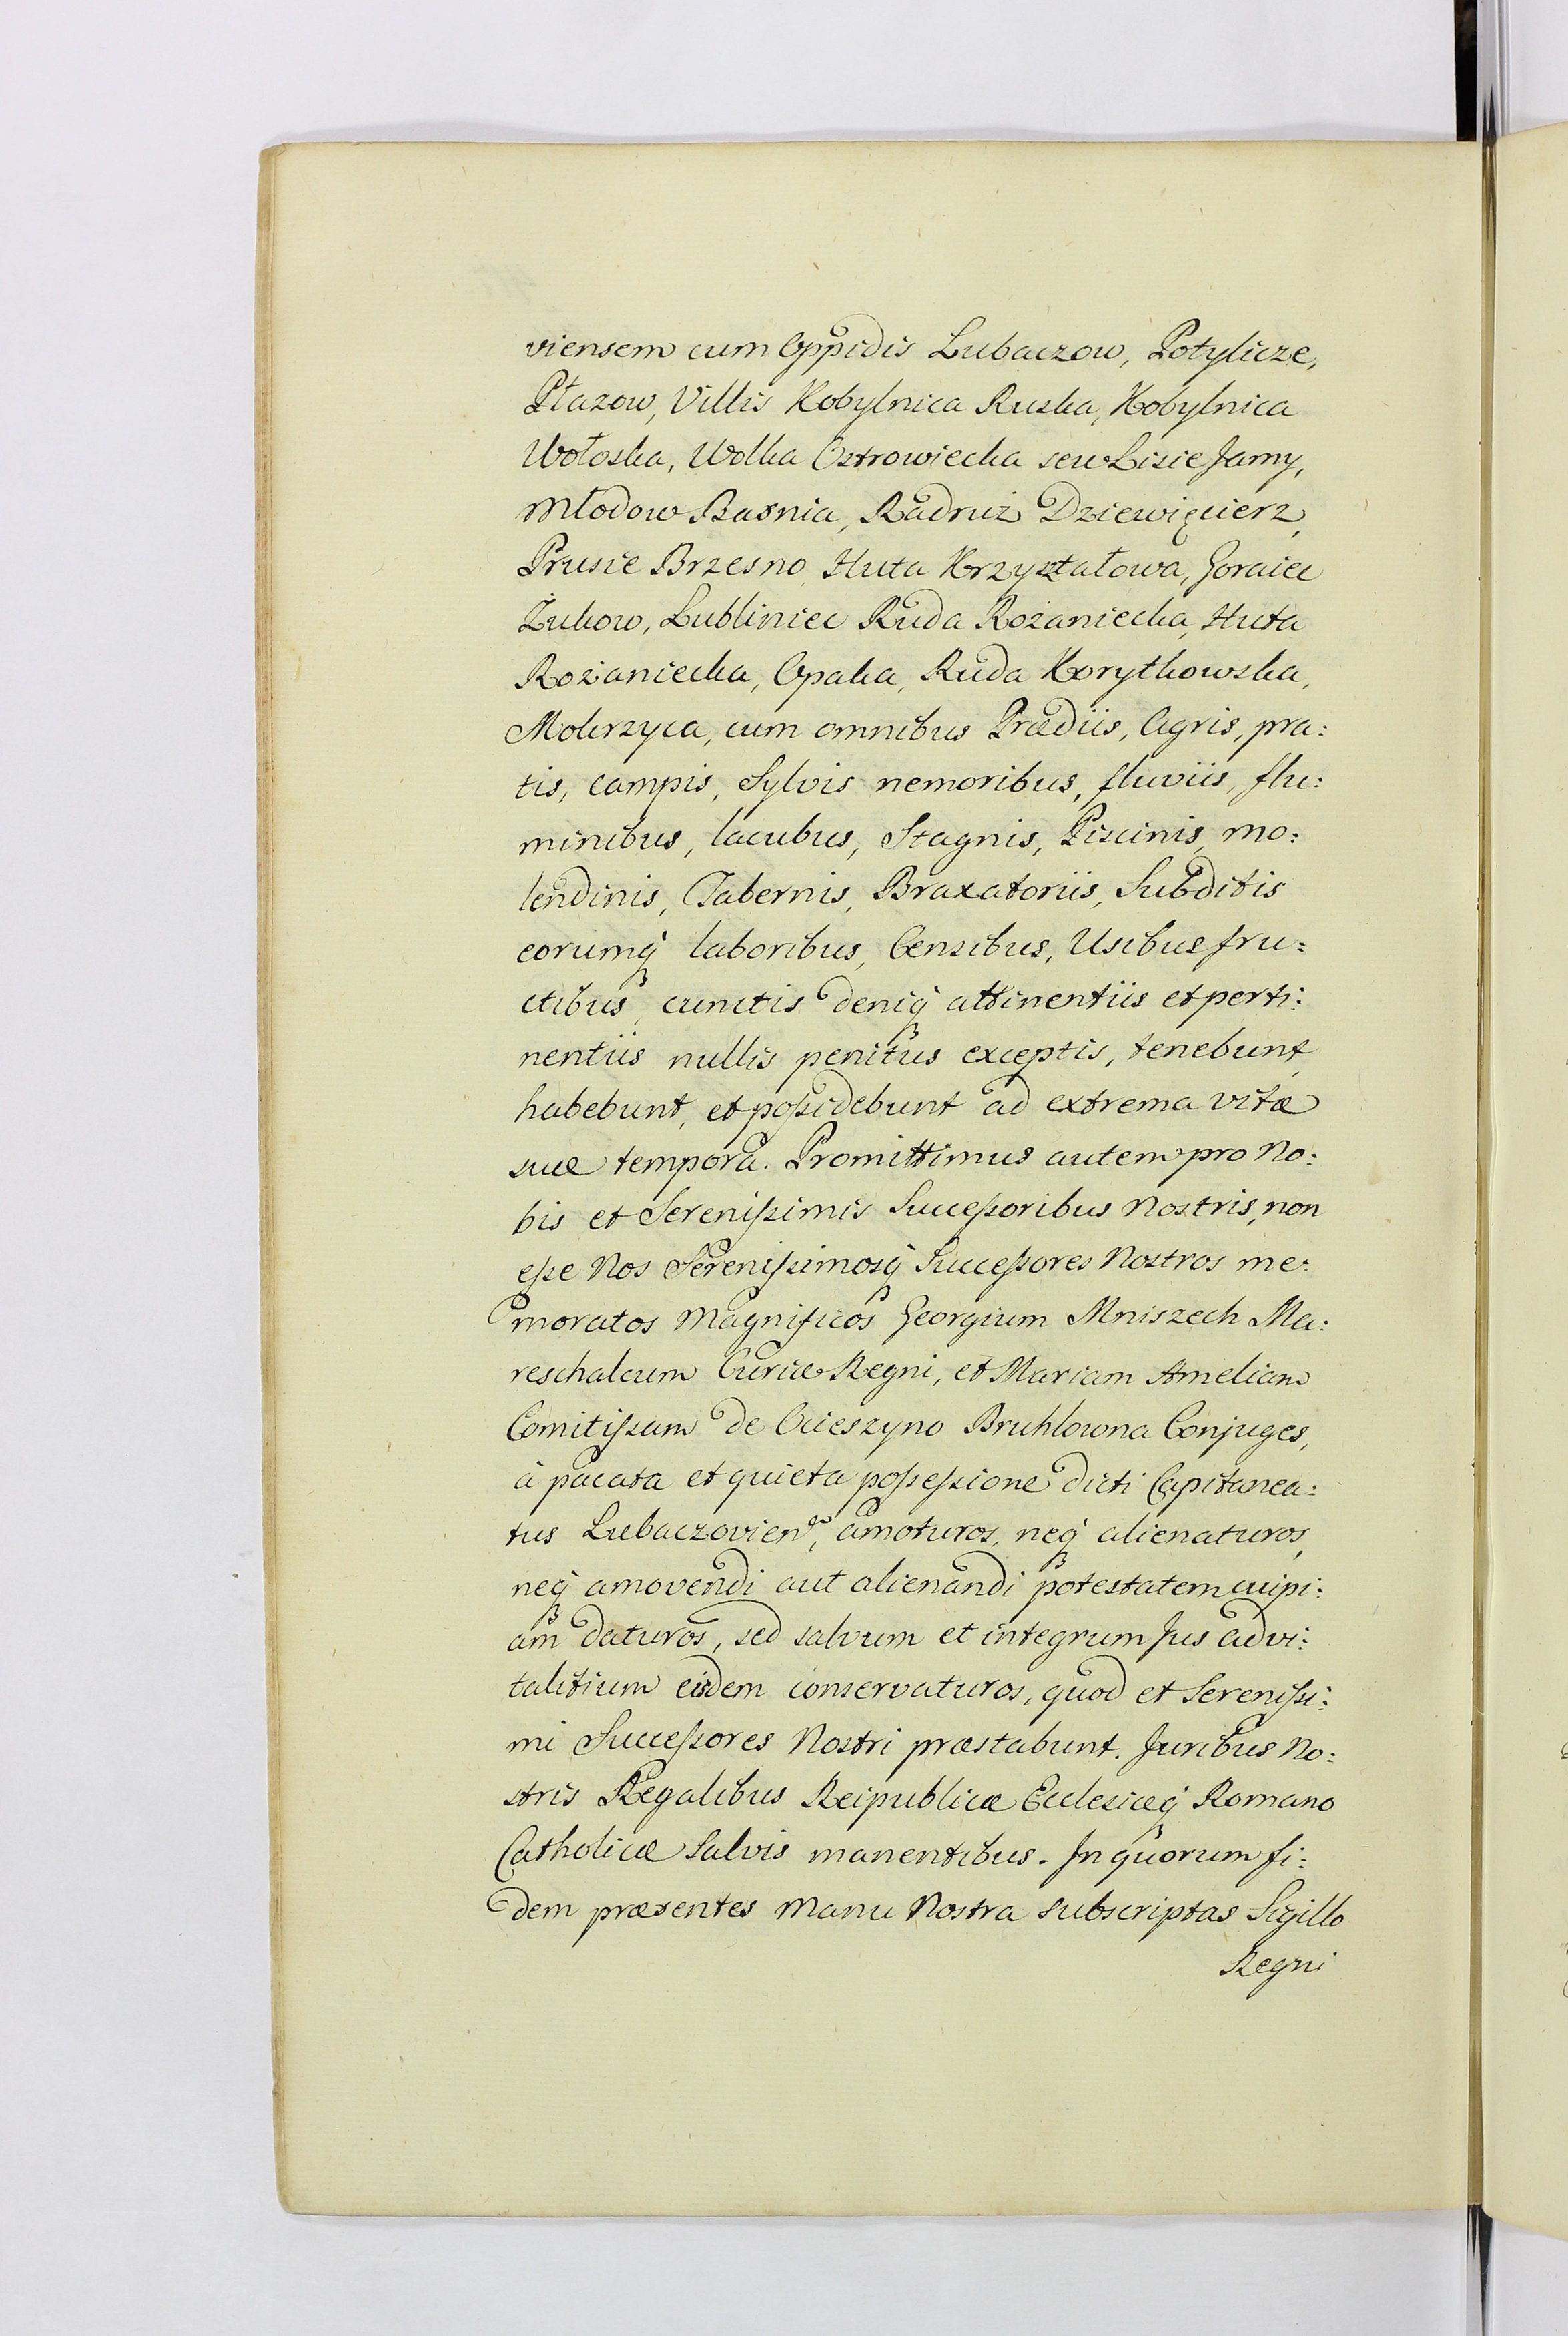 viensem cum Oppidis Lubaczow, Potylicze,
Płazow, Villis Kobylnica Ruska, Kobylnica
Wołoska, Wolka Ostrowiecka seu Lisie Jamy,
Młodow Basnia, Radruż Dziewięcierz,
Prusie Brzesno, Huta Krzyształowa, Goraiec
Żukow, Lubliniec Ruda Rożaniecka, Huta
Rożaniecka, Opaka, Ruda Korytkowska,
Mokrzyca, cum omnibus Prædiis, Agris, pra:
tis, campis, Sylvis nemoribus, fluviis, flu:
minibus, lacubus, Stagnis, Piscinis, mo:
lendinis, Tabernis, Braxatoriis, Subditis
eorumq́ laboribus, Censibus, Usibus fru:
ctibus, cunctis deniq́ attinentiis et perti:
nentiis nullis penitus exceptis, tenebunt,
habebunt, et poſsidebunt ad extrema vitæ
suæ tempora. Promittimus autem pro No:
bis et Sereniſsimis Succeſsoribus Nostris, non
eſse Nos Sereniſsimosq́ Succeſsores Nostros me:
moratos Magnificos Georgium Mniszech Ma:
reschalcum Curiæ Regni, et Mariam Ameliam
Comitiſsam de Ocieszyno Bruhlowna Conjuges,
à pacata et quieta poſseſsione dicti Capitanea:
tus Lubaczovien, amoturos, neq́ alienaturos,
neq́ amovendi aut alienandi potestatem cuipi:
am daturos, sed salvum et integrum Jus advi:
talitium eisdem conservaturos, quod et Sereniſsi:
mi Succeſsores Nostri præstabunt. Juribus No:
stris Regalibus Reipublicæ Ecclesiæq́ Romano
Catholicæ Salvis manentibus. In quorum fi:
dem præsentes Manu Nostra subscriptas Sigillo
Regni